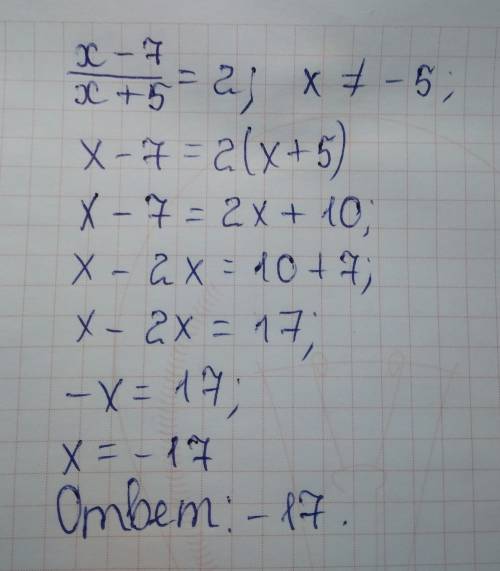 x - 7 / x + 5 = 2; x ≠ - 5;
x - 7 = 2(x + 5)
x - 7 = 2x + 10;
x - 2x = 10 + 7;
x - 2x = 17;
- x = 17;
x = - 17
Ответ: - 17.